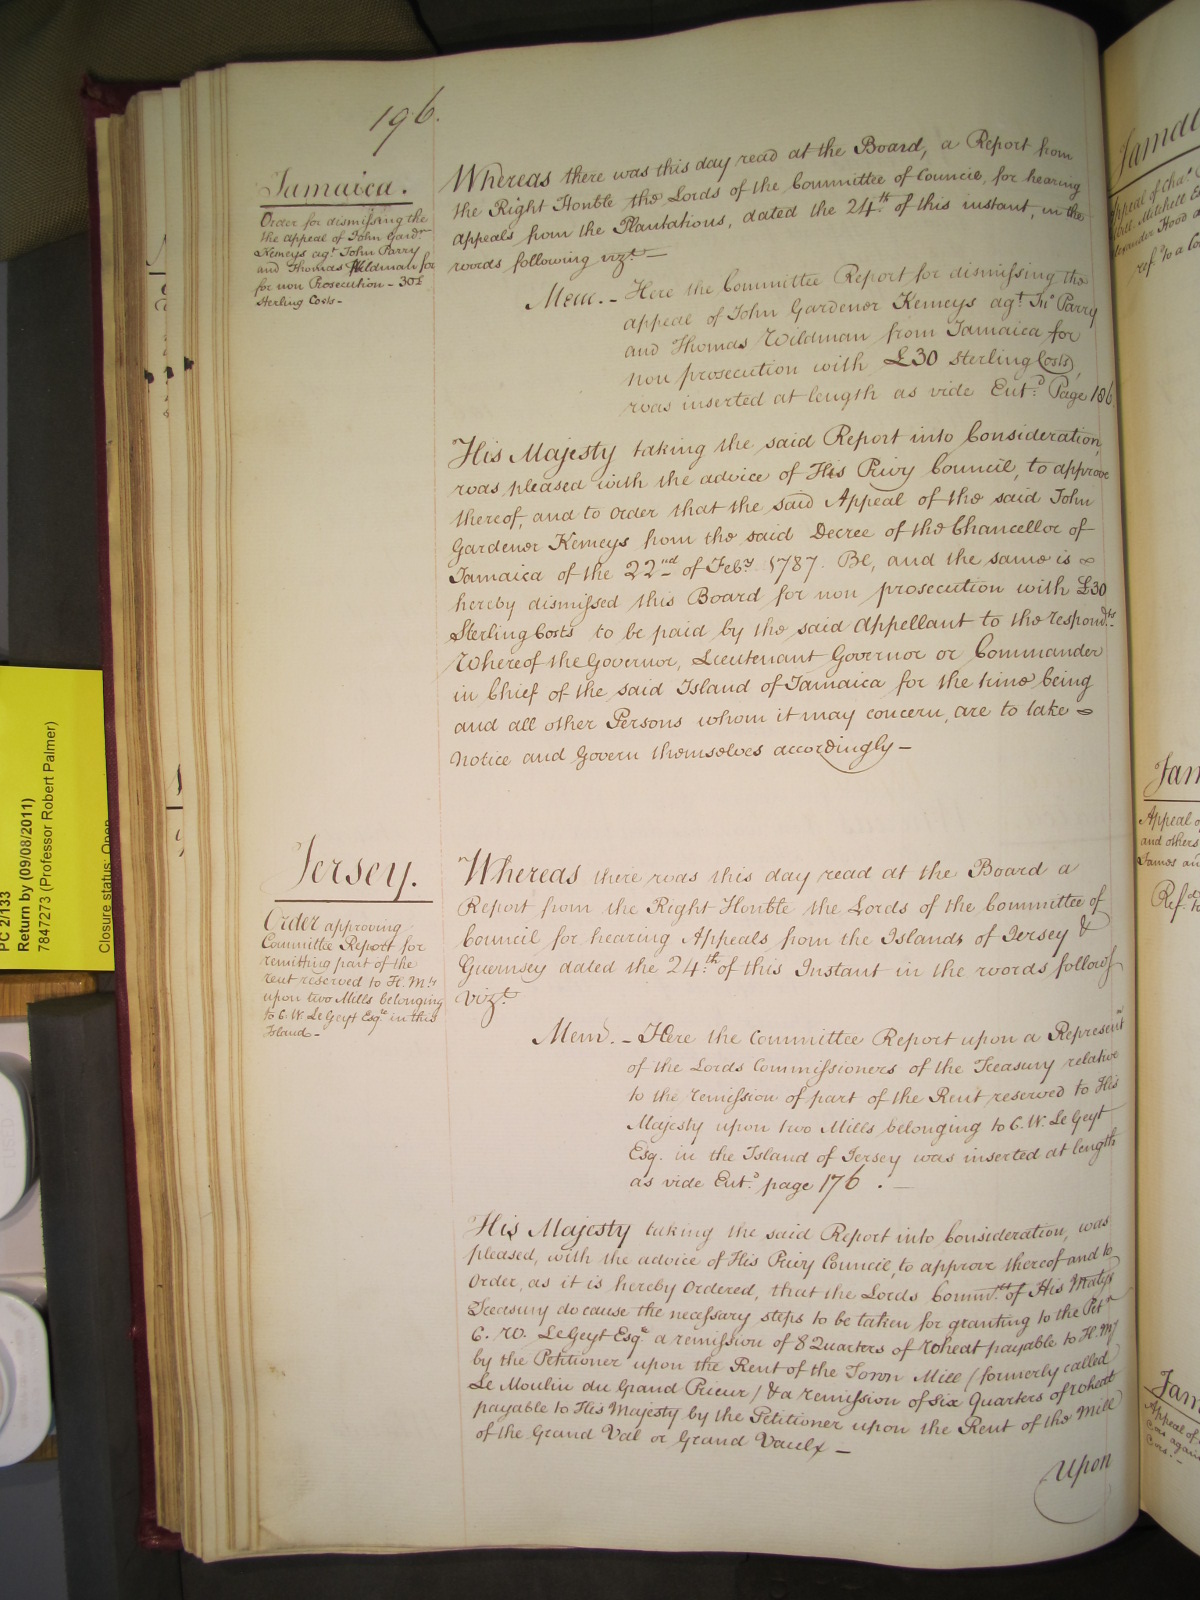 196.
Jamaica.
Order for dismissing the
the appeal of John Gardr
Kemeys agt John Parry
and Thomas Wildman for
for non Prosecution - 30£
Sterling Costs -
Whereas there was this day read at the Board, a Report from
the Right Honble the Lords of the Committee of Council, for hearing
appeals from the Plantations, dated the 24th of this instant, in the
words following vizt. —
Mem. - Here the Committee Report for dismissing the
appeal of John Gardener Kemeys agt Jno Parry
and Thomas Wildman from Jamaica for
non prosecution with £30 Sterling Costs,
was inserted at length as vide Ent:d Page 186
His Majesty taking the said Report into Consideration,
was pleased with the advice of His Privy Council, to approve
thereof, and to order that the said Appeal of the said John
Gardener Kemeys from the said Decree of the Chancellor of
Jamaica of the 22nd of Feby 1787. Be, and the same is
hereby dismissed this Board for non prosecution with £30
Sterling Costs to be paid by the said Appellant to the respondts
Whereof the Governor, Lieutenant Governor or Commander
in Chief of the said Island of Jamaica for the time being
and all other Persons whom it may concern, are to take
Notice and Govern themselves accordingly —
Jersey.
Order approving
Committee Report for
remitting part of the
rent reserved to H. My
upon two Mills belonging
to C. W. Le Geyt Esqe in this
Island -
Whereas there was this day read at the Board a
Report from the Right Honble the Lords of the Committee of
Council for hearing Appeals from the Islands of Jersey &
Guernsey dated the 24th of this Instant in the words followg
vizt.
Mem. - Here the Committee Report upon a Represent
of the Lords Commissioners of the Treasury relative
to the remission of part of the Rent reserved to His
Majesty upon two Mills belonging to C. W. Le Geyt
Esq. in the Island of Jersey was inserted at length
as vide Ent:d page 176 . —
His Majesty taking the said Report into Consideration, was
pleased, with the advice of His Privy Council, to approve thereof and to
Order, as it is hereby Ordered, that the Lords Commrs of His Matys
Treasury do cause the necessary steps to be taken for granting to the Petr
C. W. Le Geyt Esqe a remission of 8 Quarters of Wheat payable to H. My
by the Petitioner upon the Rent of the Town Mill (formerly called
Le Moulin du Grand Prieur) & a remission of Six Quarters of Wheat
payable to His Majesty by the Petitioner upon the Rent of the Mill
of the Grand Val or Grand Vaulx —
Upon
PC 2/133
Return by (09/08/2011)
7847273 (Professor Robert Palmer)
Closure status: Open
Jam
Appeal of
and others
James an
Jam
Appeal of